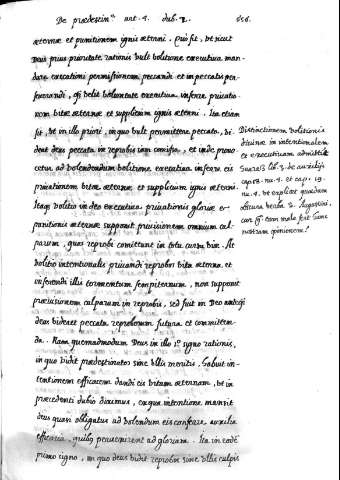 De prædestin.ne art. 4. dub. 2. 
æternæ et punitionem ignis æterni. Qui fit, vt sicut
Deus prius prioritate rationis vult volitione executiua man-
dare executioni permissionem peccandi et in peccatis per-
seuerandi, velit volutate executiua inferre priuatio-
nem vitæ æternæ et supplicium ignis æterni. Ita etiam
fit, vt in illo priori, in quo vult permittere peccata, vi-
deat deus peccata in reprobis iam comissa, et inde moue-
etur ad volendum volitione executiua inferre eis
priuationem vitæ æternæ et supplicium ignis æterni.
Itaq volitio in deo executiua priuationis gloriæ et
punitionis æternæ supponit præuisionem omnium cul-
parum, quas reprobi comittunt in tota sua vita. At
volitio intentionalis priuandi reprobos vita æterna et
inferendi illis tormentum sempiternum, non supponit
præuisionem culparum in reprobis, sed fuit in Deo anteq
deus videret peccata reproborum futura et committen-
da. Nam quemadmodum Deus in illo 1.o signo rationis,
in quo vidit prædestinatos sine vllis meritis, habuit in-
tentionem efficacem dandi eis vitam æternam, vt in
præcedenti dubio diximus, ex qua intentione mansit
deus quasi obligatus ad volendum eis conferre auxilia
efficacia, quibus peruenirent ad gloriam. Ita in eodē
primo signo, in quo deus vidit reprobos sine vllis culpis
Distinctionem volitionis
diuinæ in intentionalem
et executiuam admittit
Suarez lib. 3. de auxilijs
cap. 18. nu. 4. et cap. 19.
nu. 4. et explicat quædam
obscura verba D. Augustini,
sine
nostram opinionem.